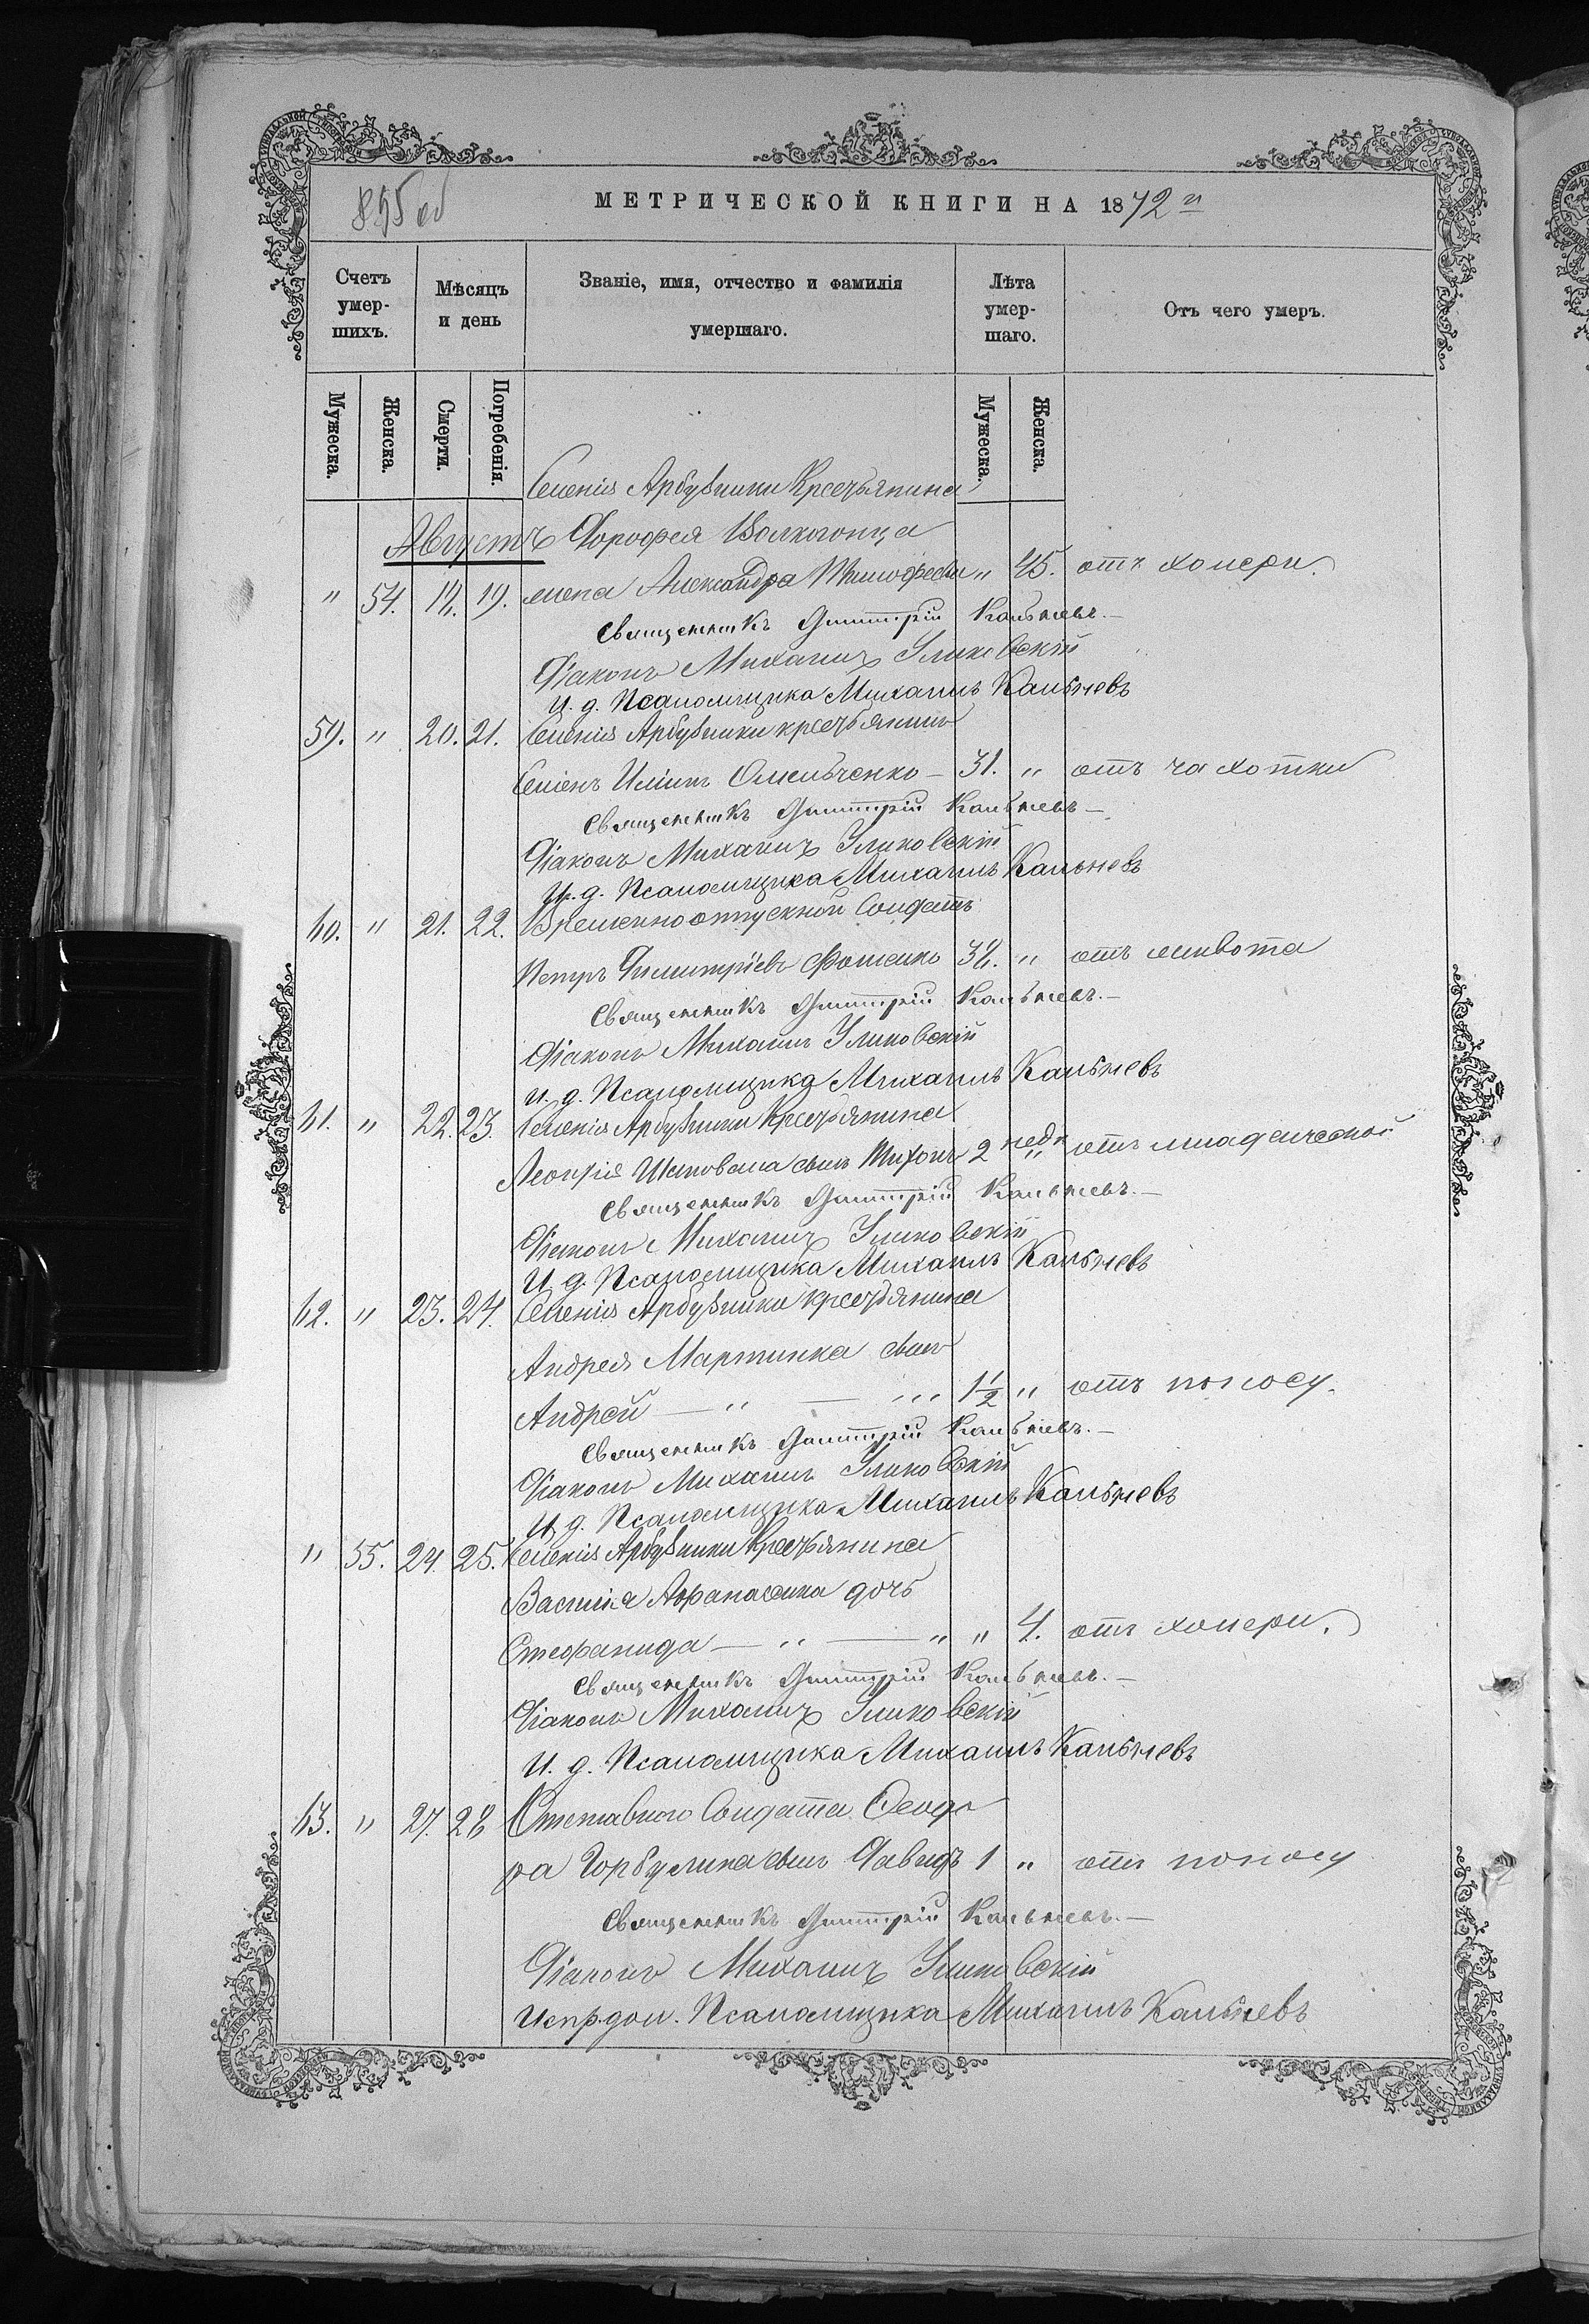 855 об
МЕТРИЧЕСКОЙ КНИГИ НА 1872 й
Счетъ умер-шихъ.
Мѣсяцъ и день
Званіе, имя, отчество и фамилія умершаго.
Лѣта умер-шаго.
Отъ чего умеръ.
Мужеска.
Женска.
Смерти.
Погребенія.
Мужеска.
Женска.
Селенія Арбузинки Крестьянина
Августъ Дорофея Волкогонца
" 54. 19. жена Александра Тимофеева " 45. отъ холеры.
Священникъ Димитрій Кальневъ.—
Діаконъ Михаилъ Уликовскій
И. д. Псаломщика Михаилъ Кальневъ
59. " 20. 21. Селенія Арбузинки крестьянинъ
Семенъ Ильинъ Омельченко — 31. " отъ чахотки
Священникъ Димитрій Кальневъ —
Діаконъ Михаилъ Уликовскій
И. д. Псаломщика Михаилъ Кальневъ
60. " 21. 22. Временноотпускной Солдатъ
Петръ Димитріевъ Фоменко 32. " отъ живота
Священникъ Димитрій Кальневъ.—
Діаконъ Михаилъ Уликовскій
и. д. Псаломщика Михаилъ Кальневъ
61. " 22. 23. Селенія Арбузинки Крестьянина
Леонтія Шаповала сынъ Тихонъ 2 недл " отъ младенческой
Священникъ Димитрій Кальневъ.—
Діаконъ Михаилъ Уликовскій
И. д. Псаломщика Михаилъ Кальневъ
62. " 23. 24. Селенія Арбузинки крестьянина
Андрея Мартинка сынъ
Андрей — " — " 1 1/2 " отъ поносу.
Священникъ Димитрій Кальневъ.—
Діаконъ Михаилъ Уликовскій
И. д. Псаломщика Михаилъ Кальневъ
" 55. 24. 25. Селенія Арбузинки Крестьянина
Василія Афанасенка дочь
Стефанида — " — " " 4. отъ холеры.
Священникъ Димитрій Кальневъ.—
Діаконъ Михаилъ Уликовскій
И. д. Псаломщика Михаилъ Кальневъ
63. " 27. 28 Отставного Солдата Феодо
ра Горбулика сынъ Давидъ 1 " отъ поносу
Священникъ Димитрій Кальневъ.—
Діаконъ Михаилъ Уликовскій
Испр. дол. Псаломщика Михаилъ Кальневъ